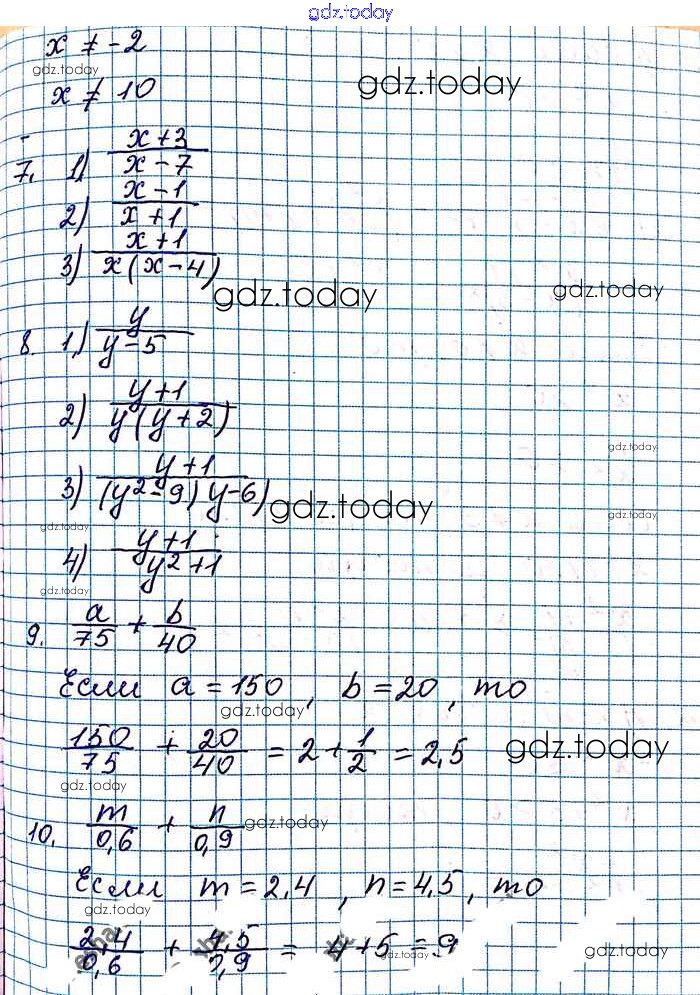 gdz.today
x ≠ -2
gdz.today
gdz.today
x ≠ 10
7. 1) (x+3)/(x-7)
2) (x-1)/(x+1)
3) (x+1)/(x(x-4))
gdz.today gdz.today
8. 1) y/(y-5)
2) (y+1)/(y(y+2))
gdz.today
3) (y+1)/((y²-9)(y-6))
gdz.today
gdz.today gdz.today
4) (y+1)/(y²+1)
gdz.today
9. a/75 + b/40
Если a = 150, b = 20, то
gdz.today
150/75 + 20/40 = 2 + 1/2 = 2,5
gdz.today
gdz.today
10. m/0,6 + n/0,9
gdz.today
Если m = 2,4, n = 4,5, то
gdz.today
2,4/0,6 + 4,5/0,9 = 4+5 = 9
gdz.today gdz.today